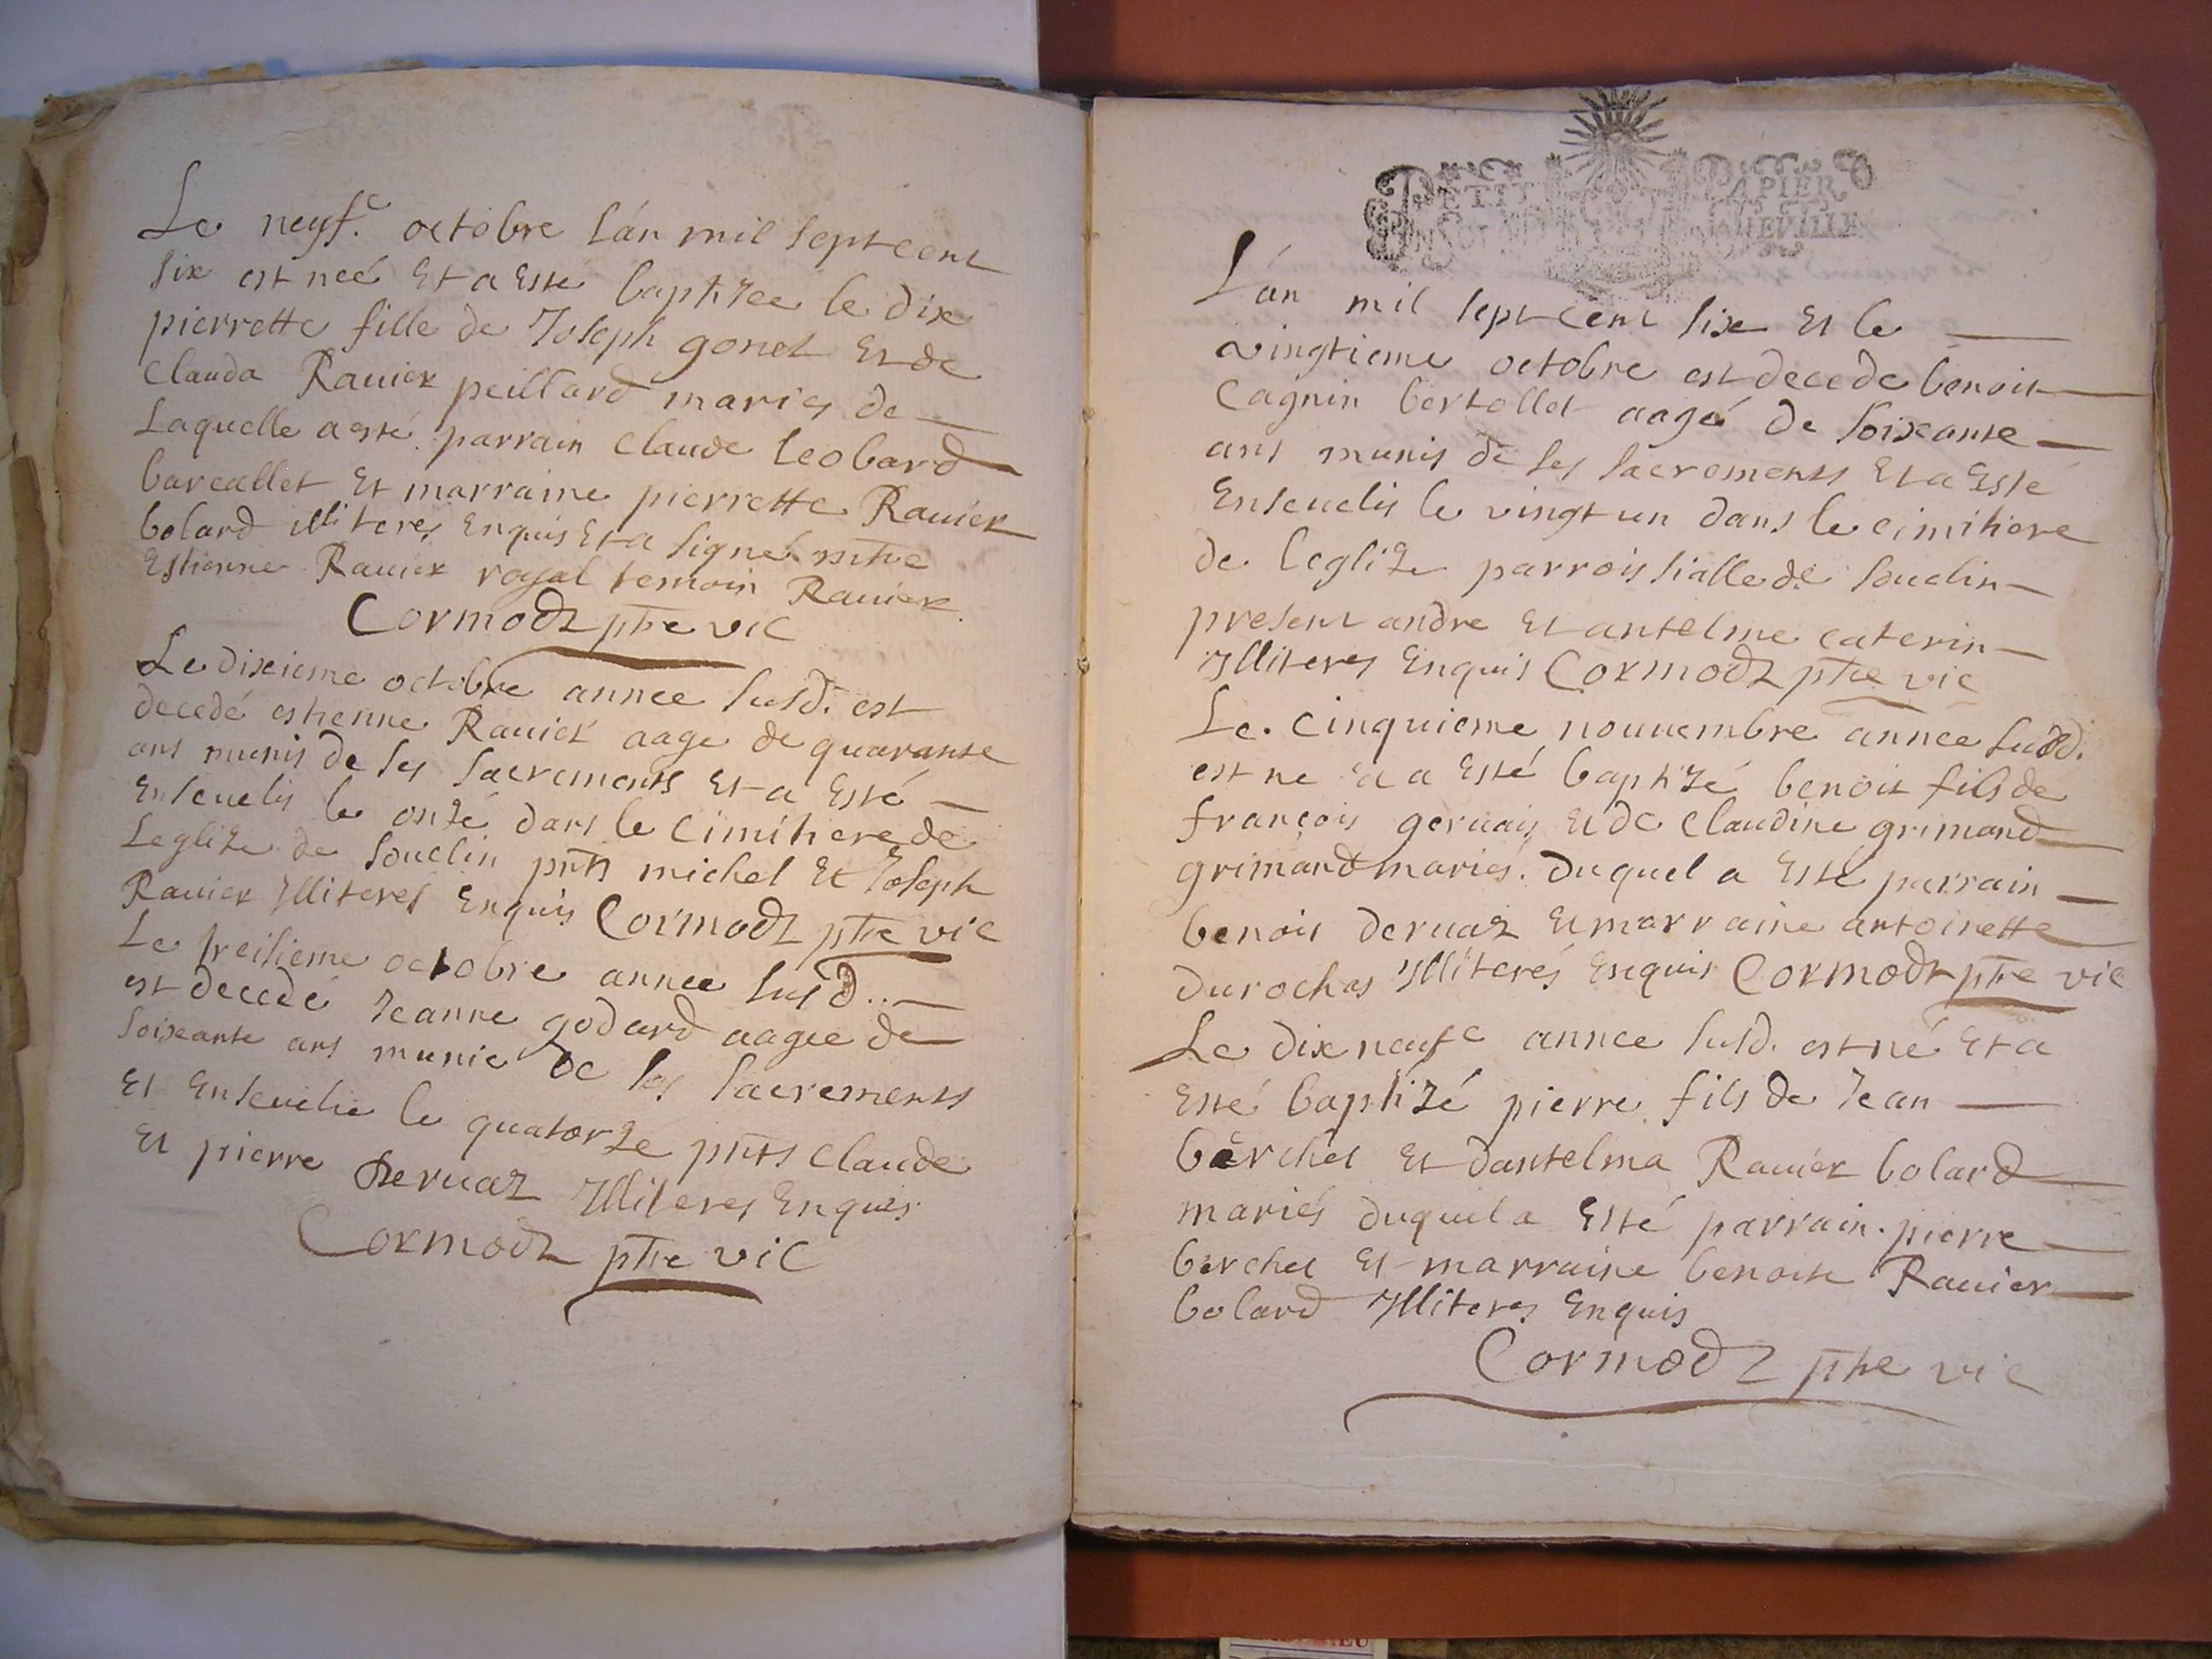 Le neuf.e octobre l'án mil sept cent
six est neé Et a Esté baptizee le dix
pierrette fille de Joseph gonet Et de
Clauda Rauier peillard mariés de
Laquelle a esté parrain Claude Leobard
barcallet Et marraine pierrette Rauier
bolard illiteres Enquis Et a signé mtre
Estienne Rauier royal temoin Rauier
Cormodz ptre vic
Le dixieme octobre annee susd. est
decedé estienne Rauier aage de quarante
ans munis de ses sacrements Et a Esté
Enseuelis le onzé dans le Cimitiere de
Leglize de souclin pnts michel Et Joseph
Rauier Jlliterés Enquis Cormodz ptre vic
Le treisieme octobre annee susd.
est decedé Jeanne godard aagee de
soixante ans munie de ses sacrements
Et Enseuelie le quatorze pnts Claude
Et pierre Deruaz Jlliteres Enquis
Cormodz ptre vic
PETIT PAPIER
L'án mil sept cent six Et le
vingtieme octobre est decede benoit
Cagnin bertollet aagé de soixante
ans munis de ses sacrements Et a Esté
Enseuelis le vingt un dans le cimitiere
de leglize parroissialle de souclin
present andre Et antelme caterin
Jlliteres Enquis Cormodz ptre vic
Le. Cinquieme nouuembre annee susd.
est ne Et a Esté baptizé benoit fils de
françois geruais Et de Claudine grimand
grimand mariés. Duquel a Esté parrain
benoit deruaz Et marraine antoinette
durochas Jlliterés Enquis Cormodz ptre vic
Le dix neufe annee susd. est né Et a
Esté baptizé pierre fils de Jean
berchet Et dantelma Rauier bolard
mariés duquel a Esté parrain. pierre
berchet Et marraine benoite Rauier
bolard Jlliteres Enquis
Cormodz ptre vic